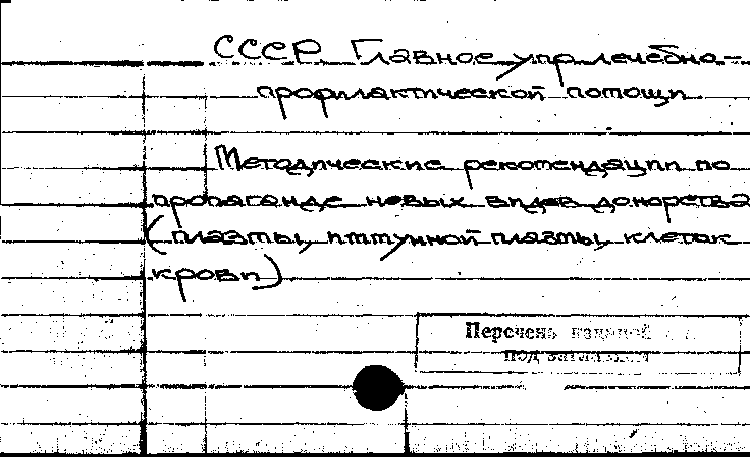 СССР. Главное упр. лечебно-
профилактической помощи.
Методические рекомендации по
пропаганде новых видов донорства
(плазмы, иммунной плазмы, клеток
крови)
Перечень изданий
под заглавием